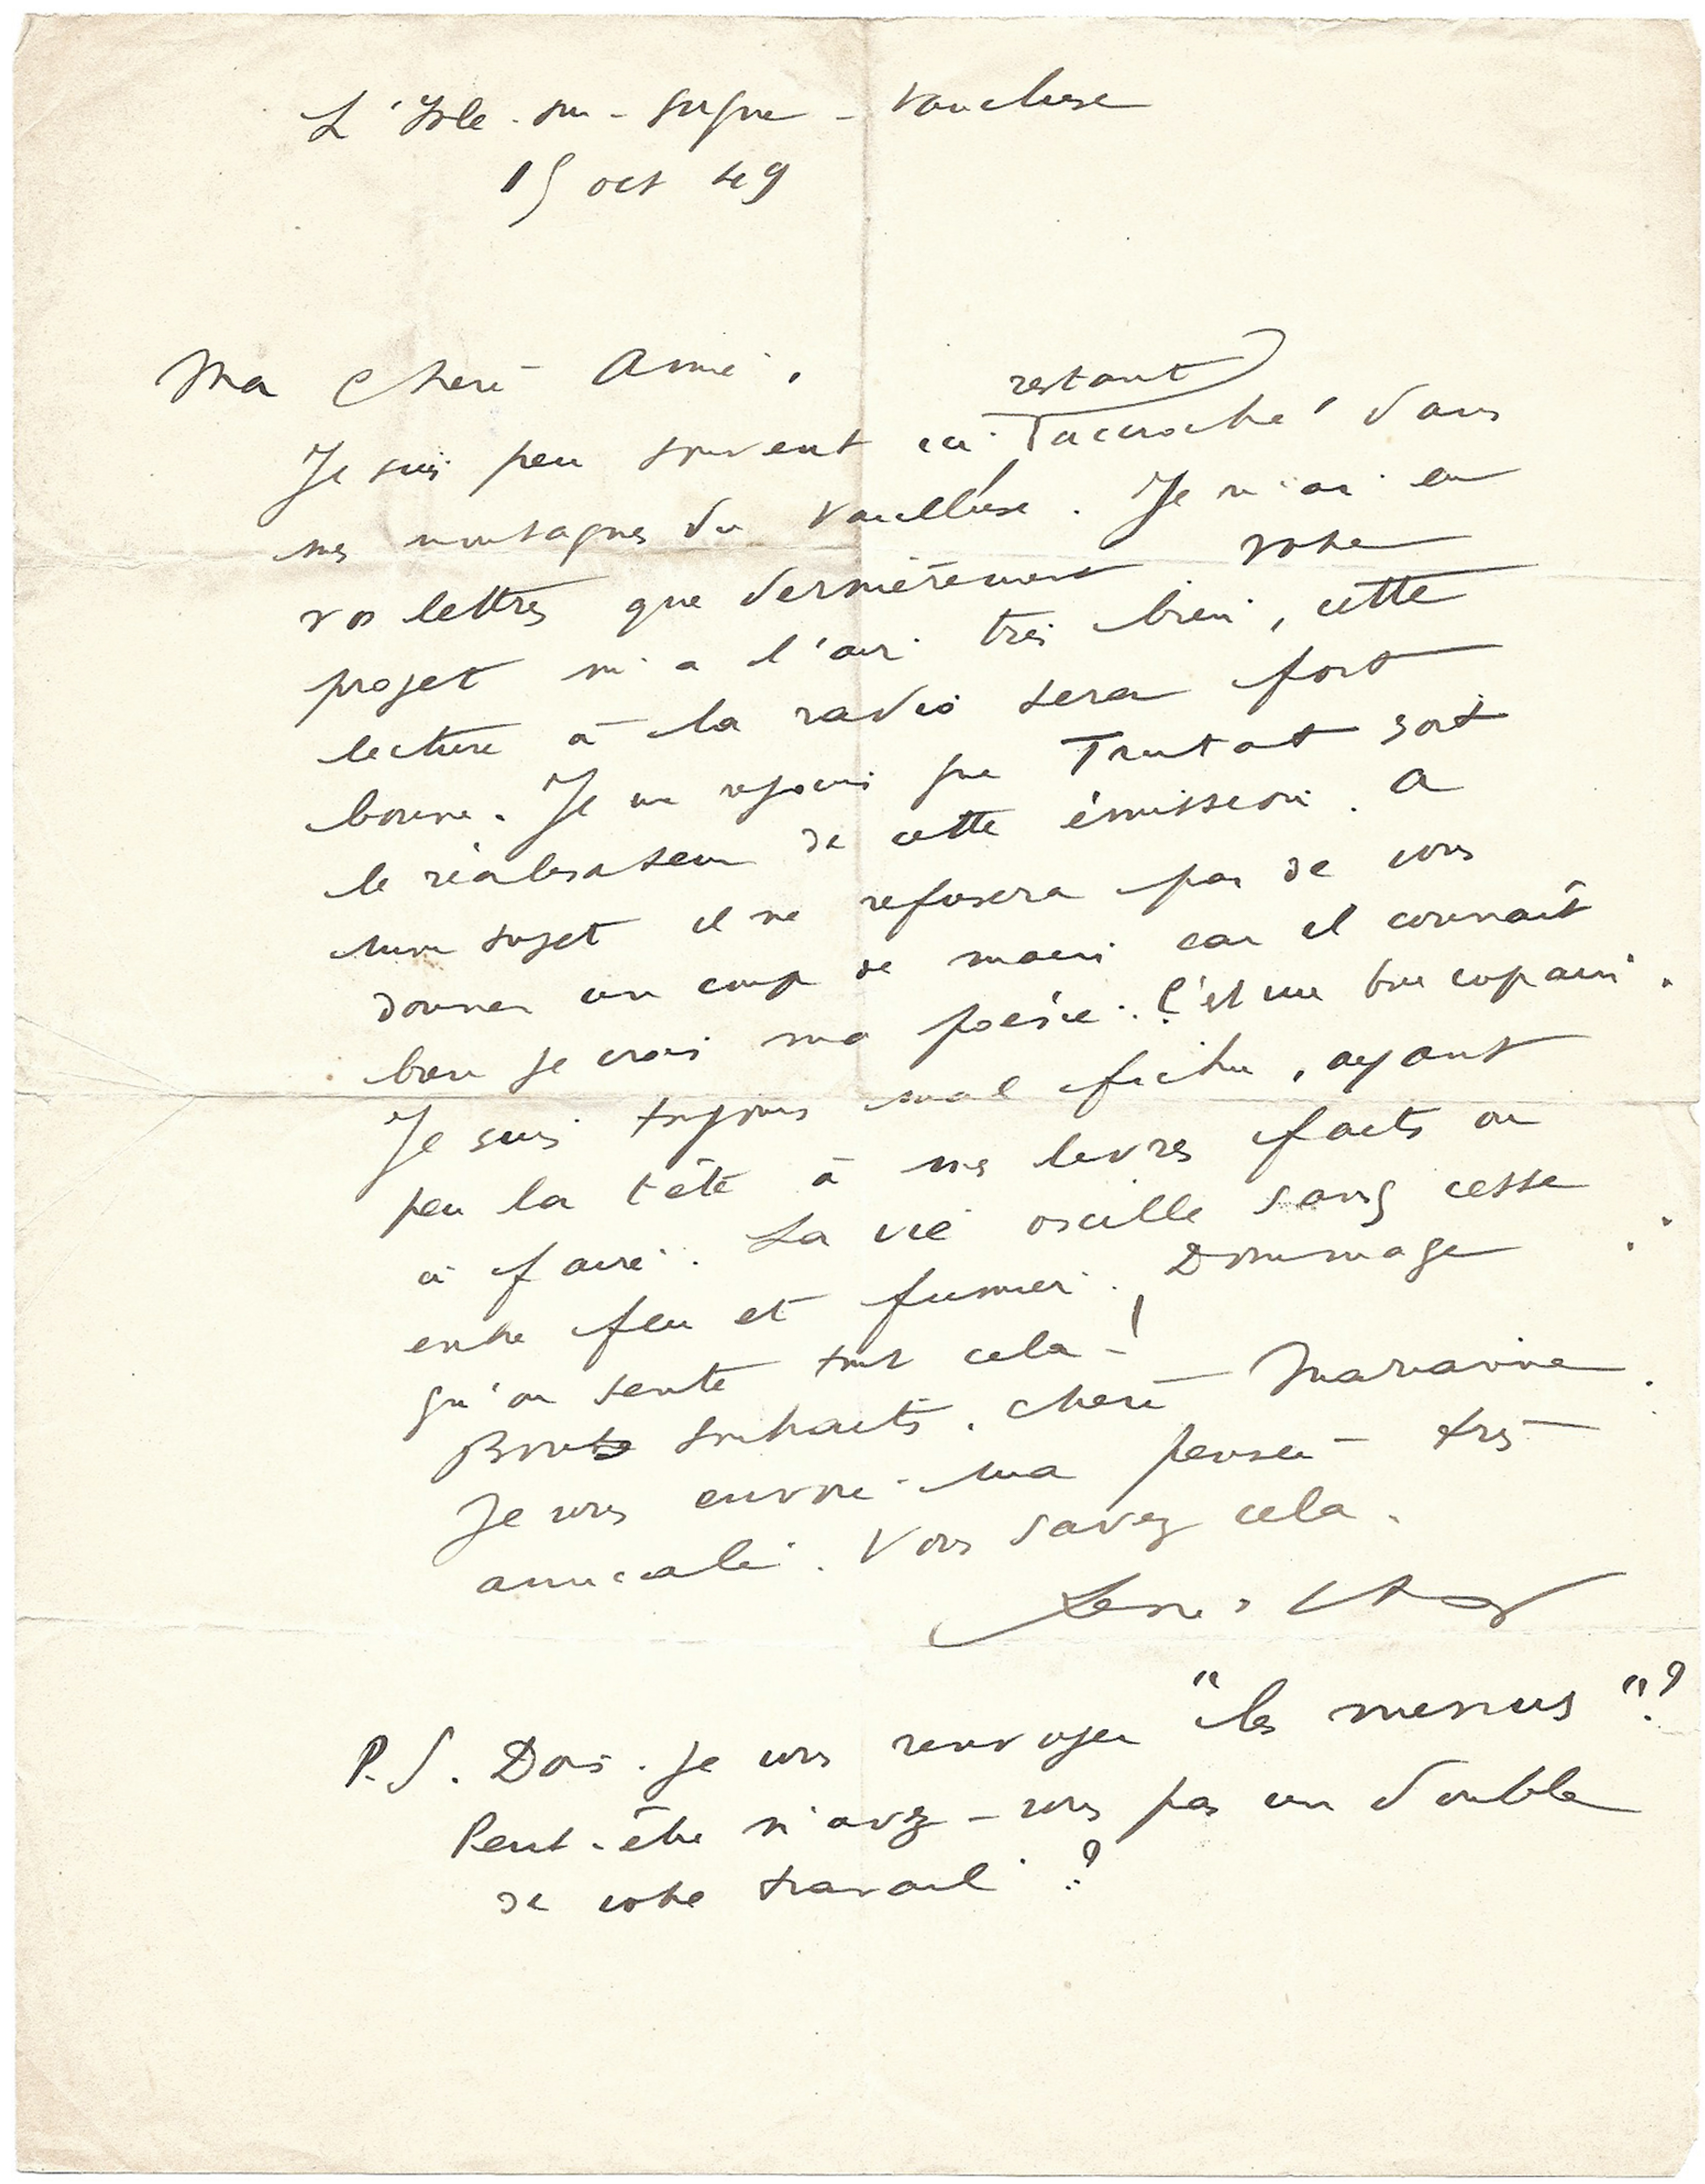 L'Isle-sur-Sorgue - Vaucluse
15 oct 49
Ma Chère Amie,
restant
Je suis peu souvent ici accroché dans
mes montagnes du Vaucluse. Je n'ai eu
vos lettres que dernièrement votre
projet m'a l'air très bien, cette
lecture à la radio sera fort
bonne. Je me réjouis que Trutat soit
le réalisateur de cette émission. A
mon sujet il ne refusera pas de vous
donner un coup de main car il connaît
bien je crois ma poésie. C'est un bon copain.
Je suis toujours mal fichu, ayant
peu la tête à mes livres faits ou
à faire. La vie oscille sans cesse
entre feu et fumier. Dommage
qu'on sente tout cela !
Bons souhaits. Chère Marianne
Je vous envoie ma pensée très
amicale. Vous savez cela.
René Char
P.S. Dois-je vous renvoyer "les menus" ?
Peut-être n'avez-vous pas un double
de votre travail ?